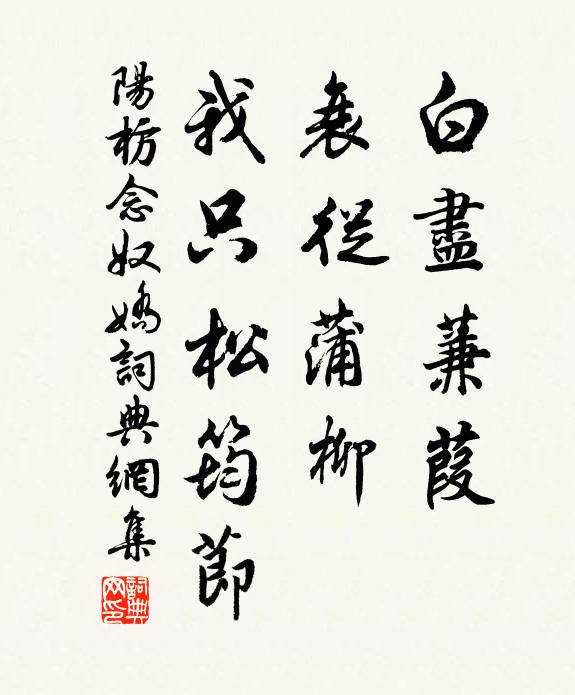 白盡蒹葭
衰從蒲柳
我只松筠節
陽枋念奴嬌詞典網集
詞典
网印